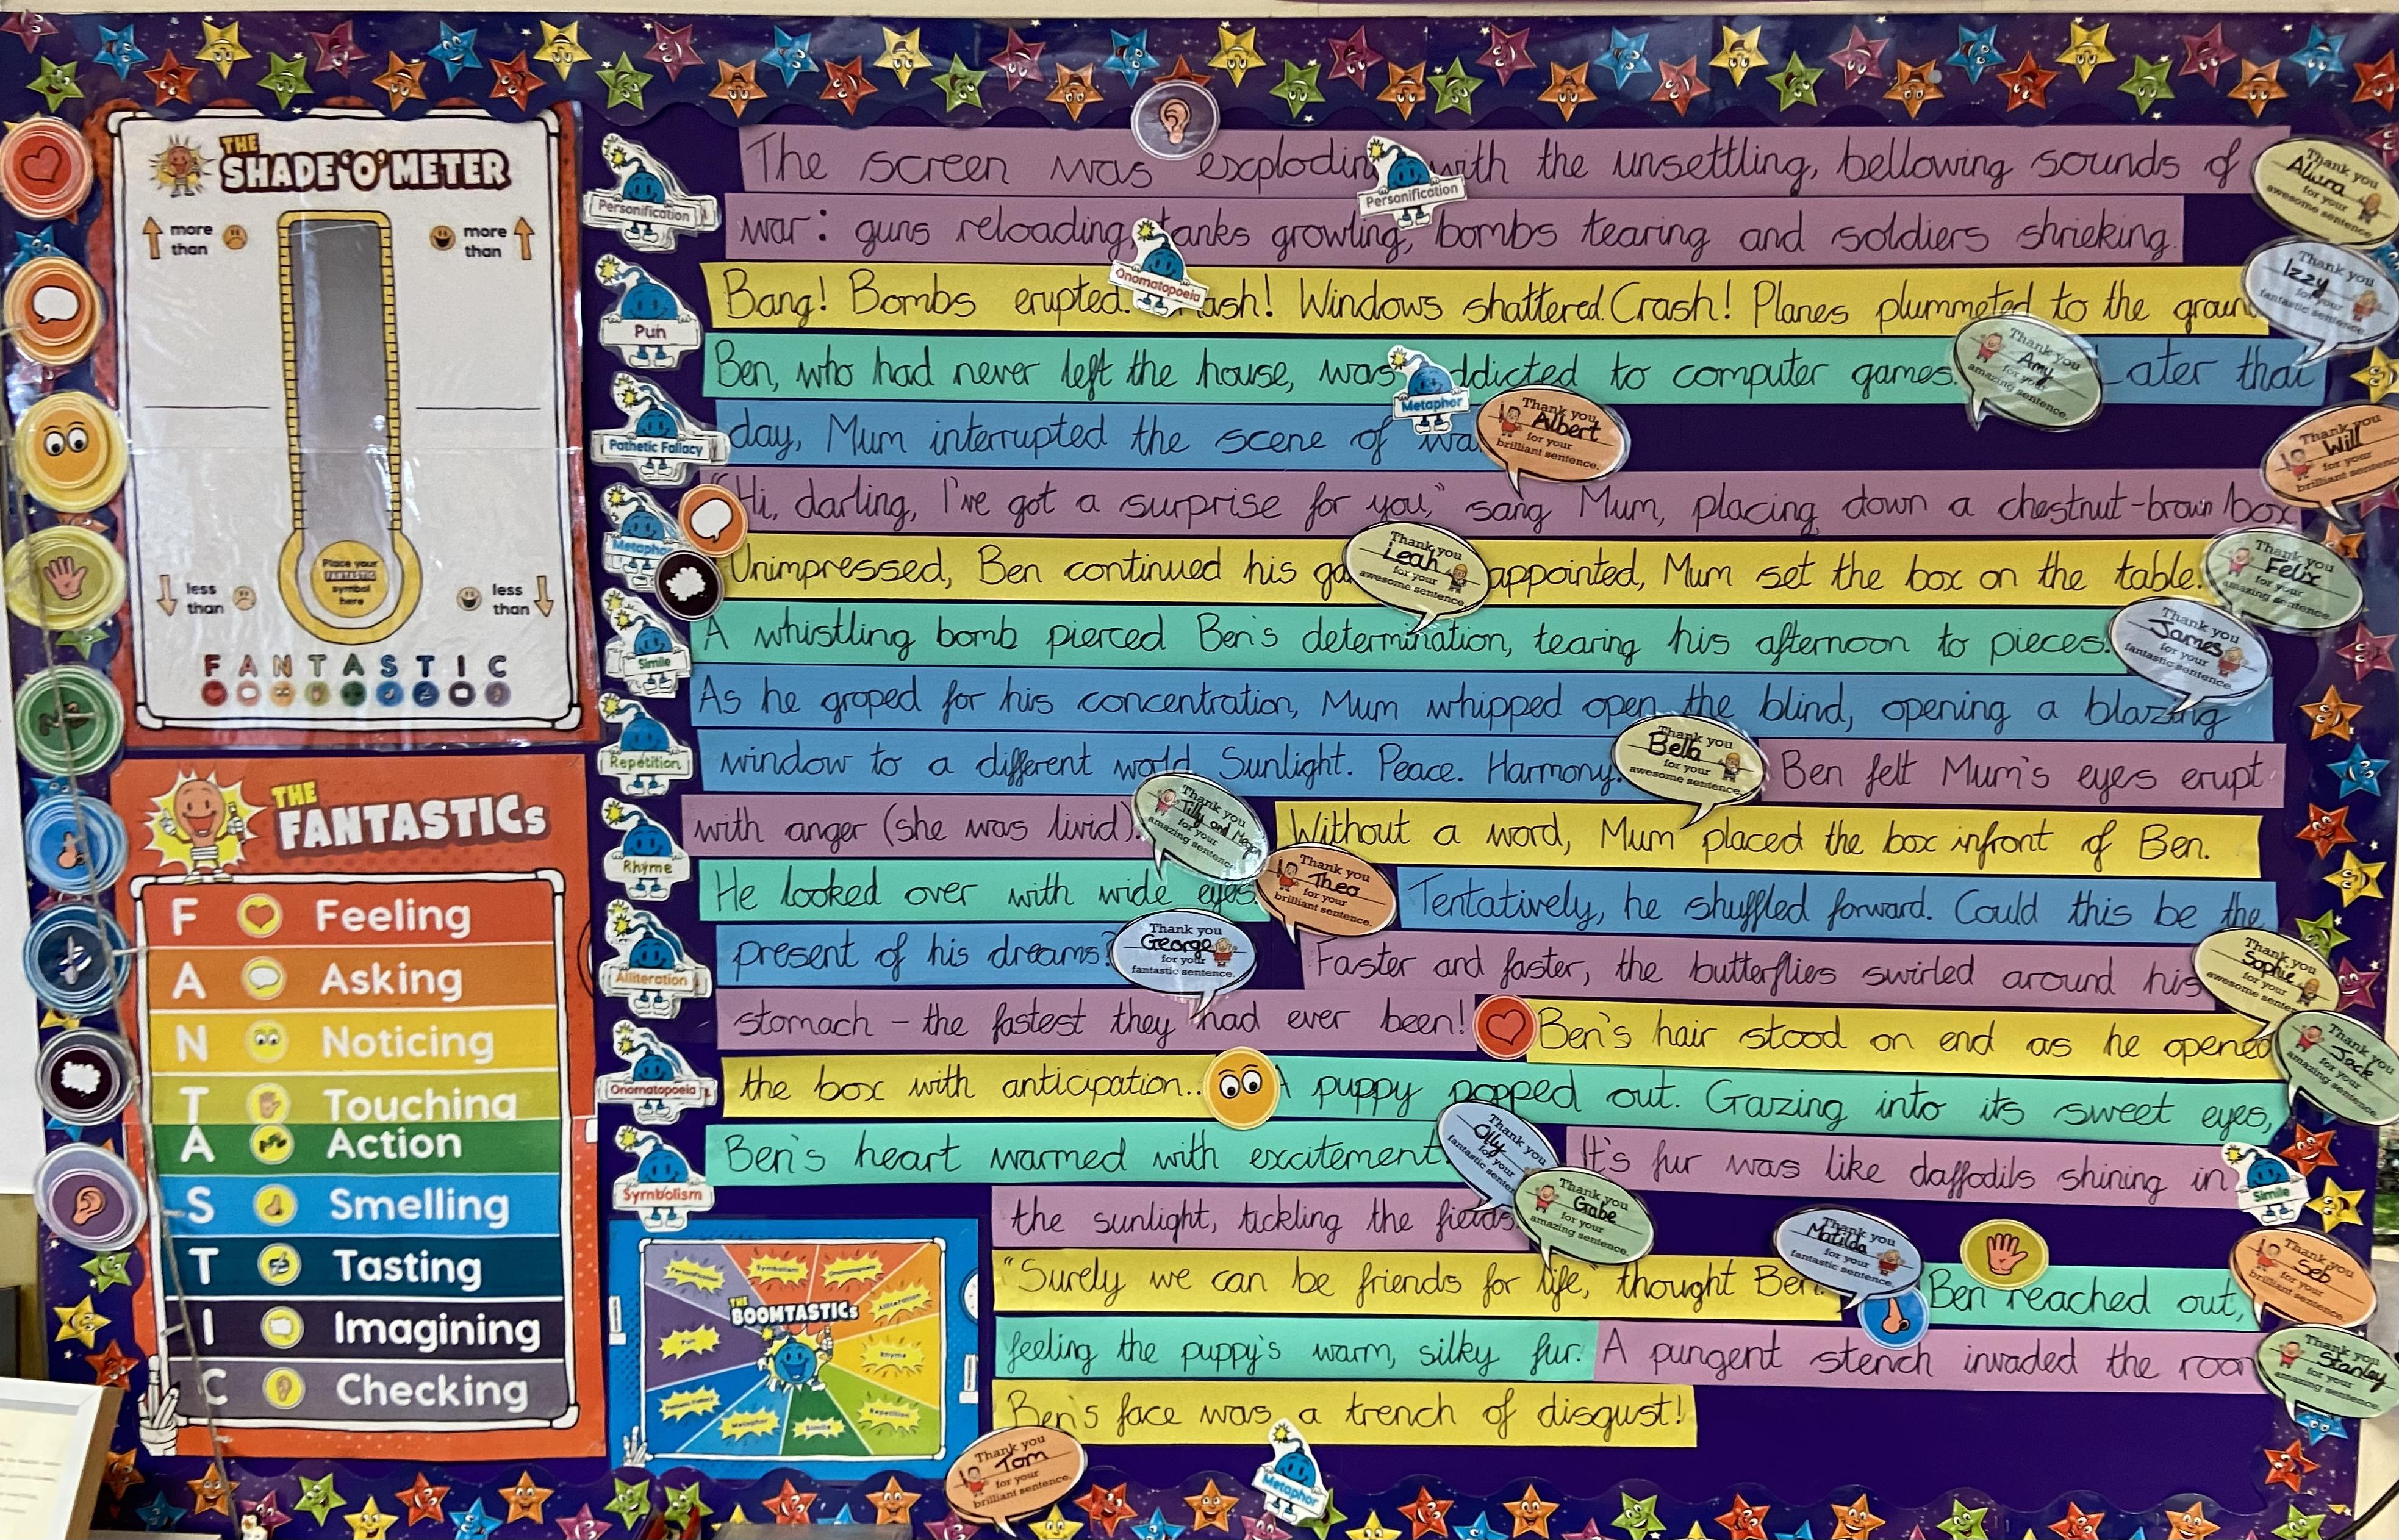 THE
SHADE'O'METER
more
than
more
than
less
than
less
than
Place your
FANTASTIC
symbol
here
F A N T A S T I C
THE
FANTASTICs
F Feeling
A Asking
N Noticing
T Touching
A Action
S Smelling
T Tasting
I Imagining
C Checking
Personification
Pun
Pathetic Fallacy
Metaphor
Simile
Repetition
Rhyme
Alliteration
Onomatopoeia
Symbolism
The screen was explodin with the unsettling, bellowing sounds of
Personification
Thank you
Alura
for your
awesome sentence.
war: guns reloading, tanks growling, bombs tearing and soldiers shrieking.
Onomatopoeia
Thank you
Izzy
for your
fantastic sentence.
Bang! Bombs erupted. ash! Windows shattered. Crash! Planes plummeted to the groun
Ben, who had never left the house, was ddicted to computer games.
Metaphor
Thank you
Amy
for your
amazing sentence.
Later that
day, Mum interrupted the scene of wa
Thank you
Albert
for your
brilliant sentence.
Thank you
Will
for your
brilliant sentence
"Hi, darling, I've got a surprise for you," sang Mum, placing down a chestnut-brown box
Unimpressed, Ben continued his ga
Thank you
Leah
for your
awesome sentence.
appointed, Mum set the box on the table.
Thank you
Felix
for your
amazing sentence.
A whistling bomb pierced Ben's determination, tearing his afternoon to pieces.
Thank you
James
for your
fantastic sentence.
As he groped for his concentration, Mum whipped open the blind, opening a blazing
window to a different world. Sunlight. Peace. Harmony.
Thank you
Bella
for your
awesome sentence.
Ben felt Mum's eyes erupt
with anger (she was livid).
Thank you
Tilly and
for your
amazing sentence.
Without a word, Mum placed the box infront of Ben.
He looked over with wide eyes.
Thank you
Thea
for your
brilliant sentence.
Tentatively, he shuffled forward. Could this be the
present of his dreams?
Thank you
George
for your
fantastic sentence.
Faster and faster, the butterflies swirled around his
Thank you
Sophie
for your
awesome sentence
stomach - the fastest they had ever been!
Ben's hair stood on end as he opened
Thank you
Jack
for your
amazing sentence.
the box with anticipation..
A puppy popped out. Gazing into its sweet eyes,
Ben's heart warmed with excitement.
Thank you
Olly
for your
fantastic sentence
It's fur was like daffodils shining in
Simile
the sunlight, tickling the fields
Thank you
Gabe
for your
amazing sentence.
"Surely we can be friends for life," thought Ben.
Thank you
Matilda
for your
fantastic sentence.
Ben reached out,
Thank you
Seb
for your
brilliant sentence.
feeling the puppy's warm, silky fur. A pungent stench invaded the room
Thank you
Stanley
for your
amazing sentence.
Ben's face was a trench of disgust!
Metaphor
Thank you
Tom
for your
brilliant sentence.
THE
BOOMTASTICs
Personification
Symbolism
Onomatopoeia
Alliteration
Rhyme
Repetition
Simile
Metaphor
Pathetic Fallacy
Pun